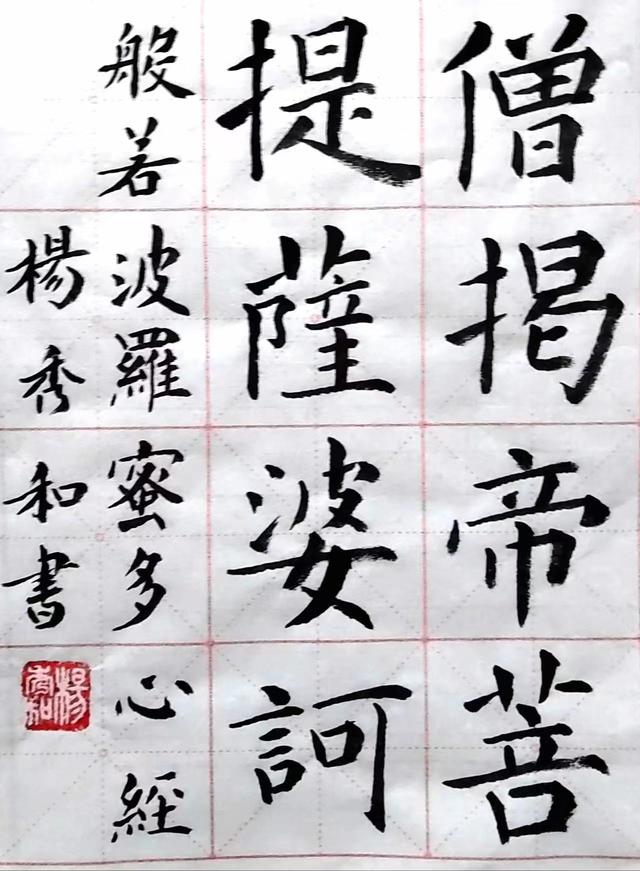 僧揭帝菩
提薩婆訶
般若波羅蜜多心經
楊秀和書
楊秀和